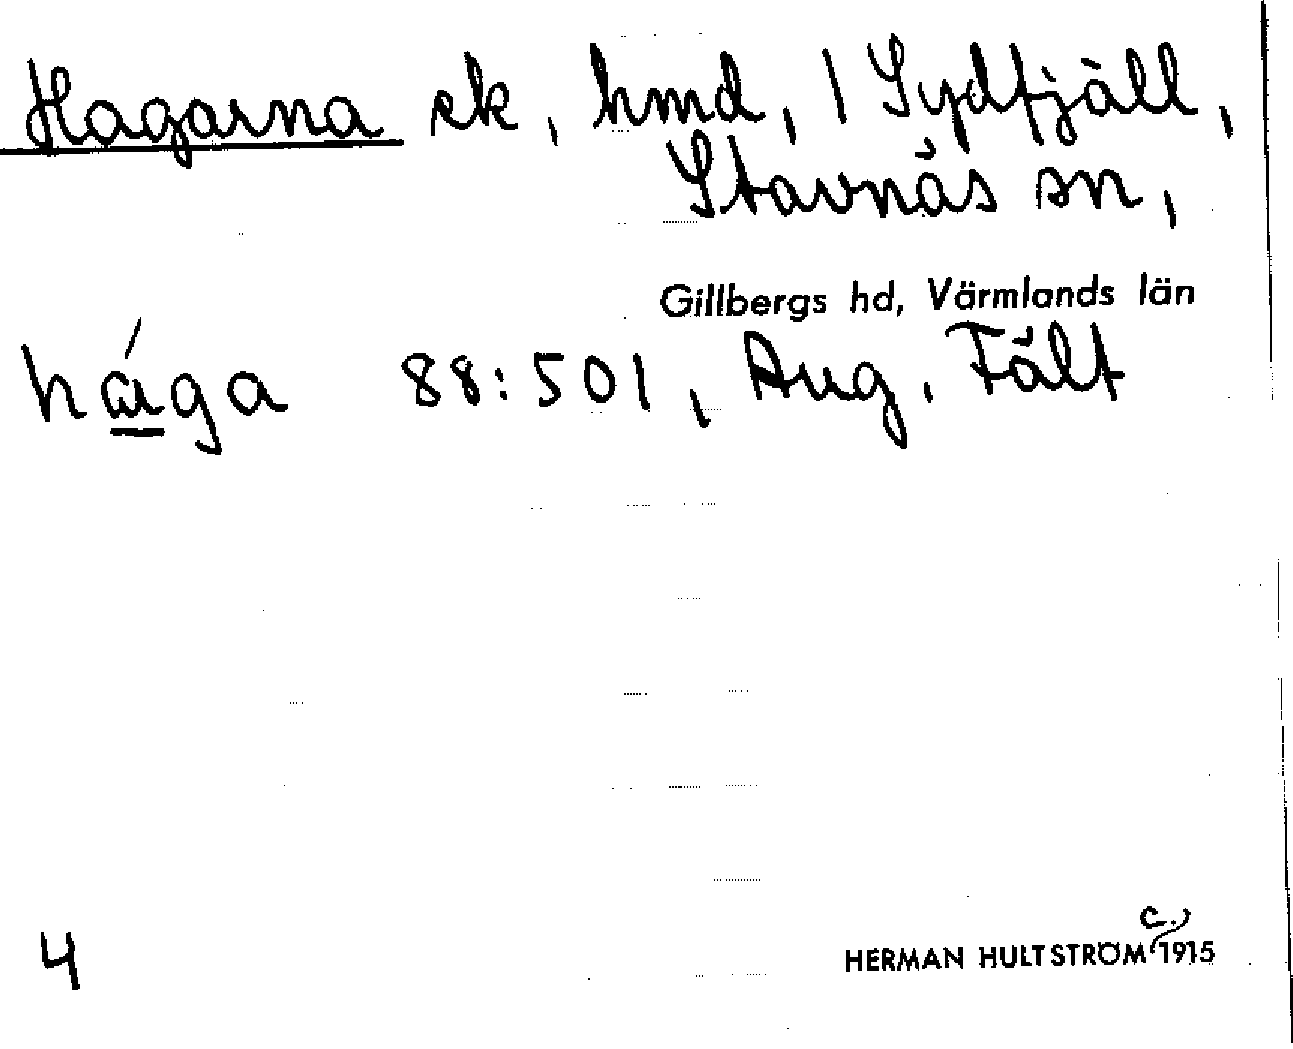 Hagarna ek, hmd, 1 Sydfjäll,
Stavnäs sn,
Gillbergs hd, Värmlands län
há̱ga 88:501, Aug. Fält
4
HERMAN HULTSTRÖM c. 1915